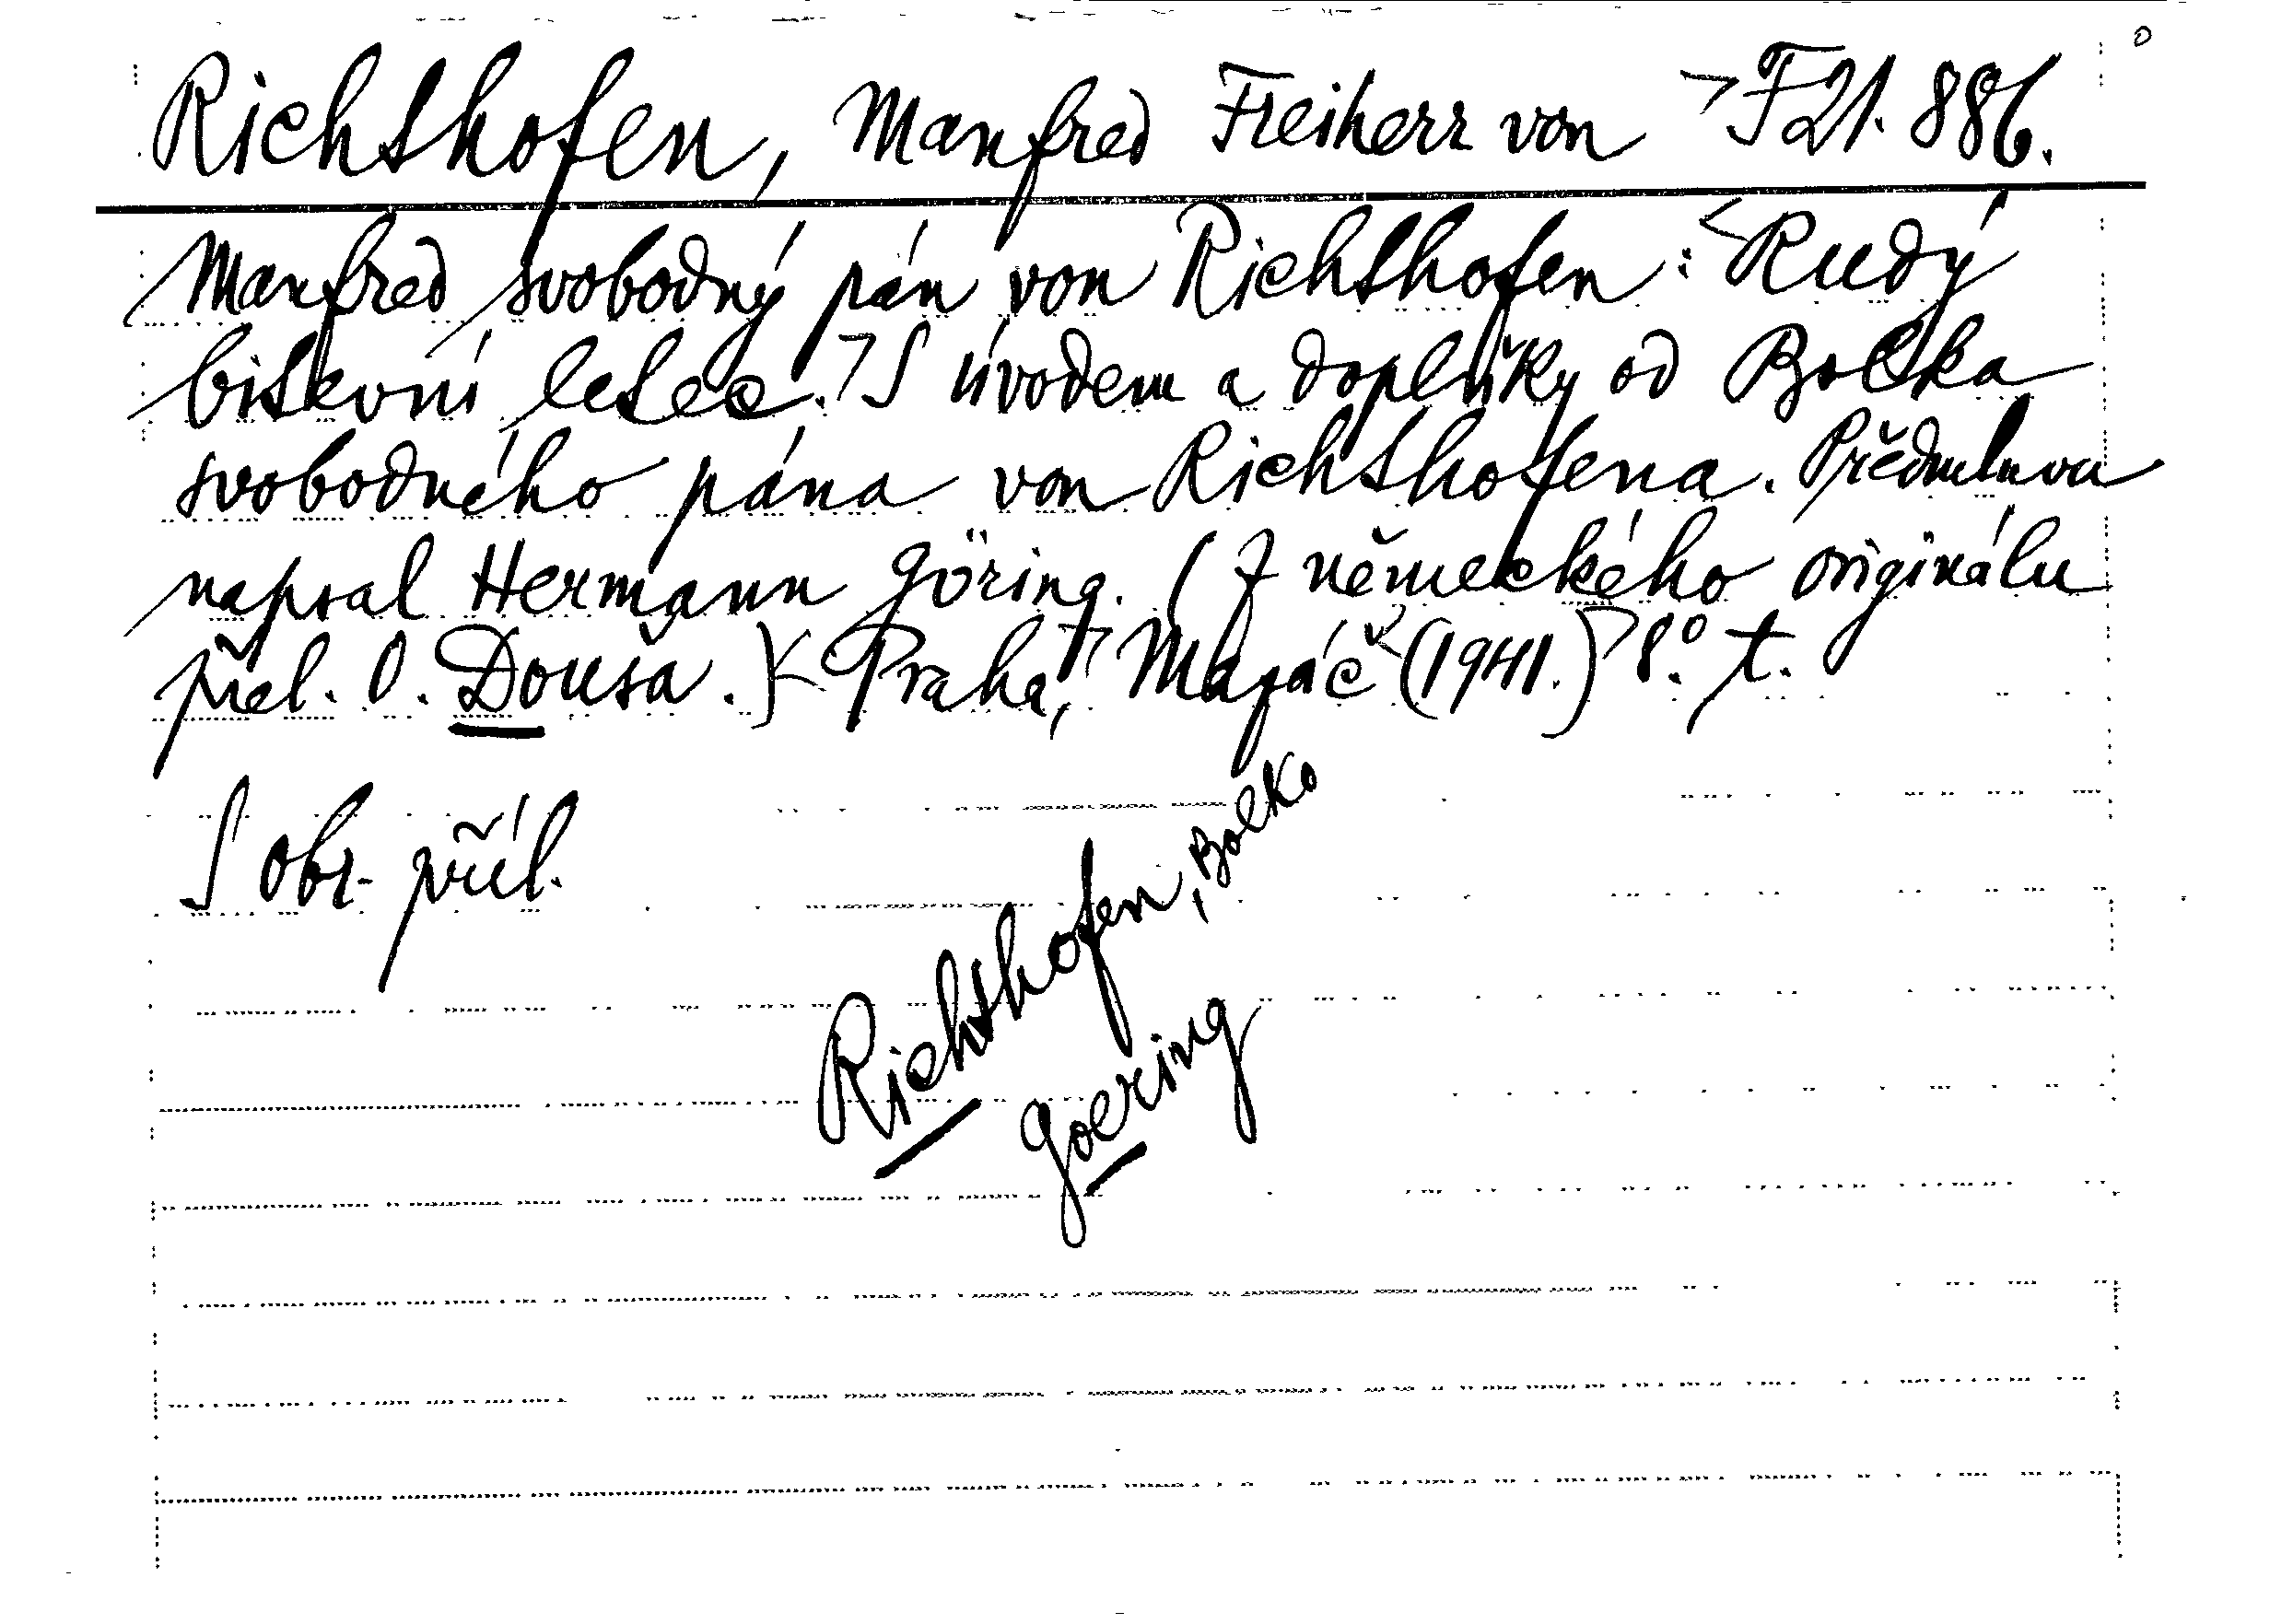 Richthofen, Manfred Freiherr von F21.886.
Manfred svobodný pán von Richthofen: Rudý
bitevní letec. S úvodem a doplňky od Bolka
svobodného pána von Richthofena. Předmluva
napsal Hermann Göring. (Z německého originálu
přel. O. Douša.) Praha, Mazáč (1941.) 8°. t.
S obr. příl.
Richthofen, Bolko
Goering